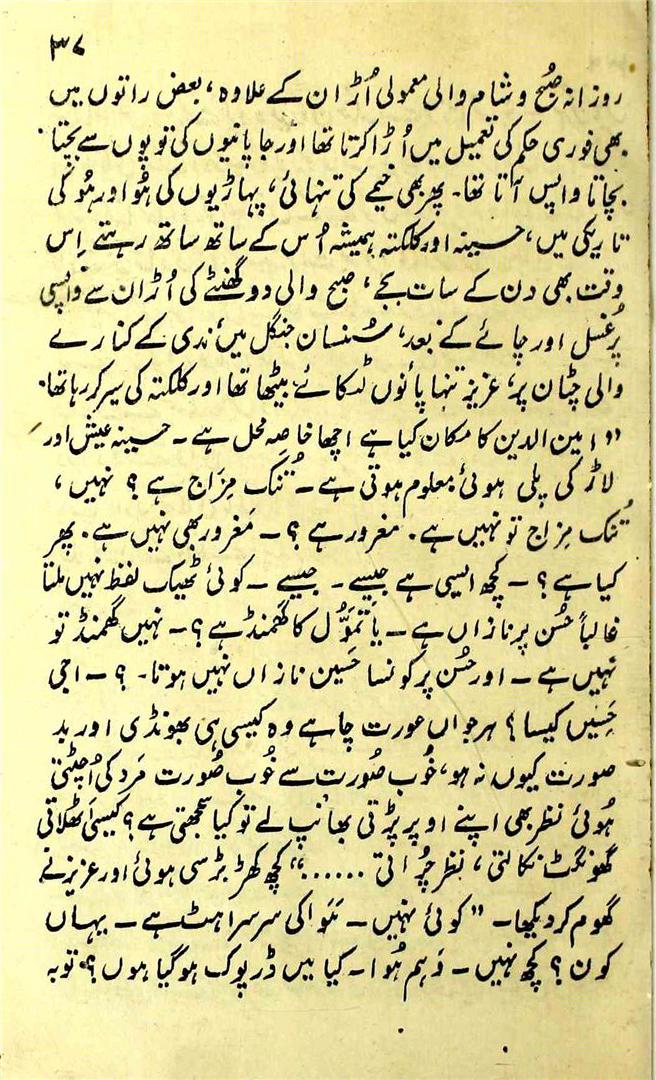 ۳۷
روزانہ صُبح و شام والی معمولی اُڑان کے علاوہ، بعض راتوں میں
بھی فوری حکم کی تعمیل میں اُڑا کرتا تھا اور جاپانیوں کی توپوں سے بچتا
بچاتا واپس آتا تھا۔ پھر بھی خیمے کی تنہائی، پہاڑیوں کی ہُو اور ہُو کی
تاریکی میں، حسینہ اور کلکتہ ہمیشہ اُس کے ساتھ ساتھ رہتے اِس
وقت بھی دن کے سات بجے، صبح والی دو گھنٹے کی اُڑان سے واپسی
پر غسل اور چائے کے بعد، سُنسان جنگل میں ندی کے کنارے
والی چٹان پر، عزیز تنہا پائوں لٹکائے بیٹھا تھا اور کلکتہ کی سیر کر رہا تھا۔
"امین الدین کا مکان کیا ہے اچھا خاصہ محل ہے۔ حسینہ عیش اور
لاڑ کی پلی ہوئی معلوم ہوتی ہے۔ تُنک مِزاج ہے؟ نہیں،
تُنک مِزاج تو نہیں ہے۔ مغرور ہے؟ ۔ مَغرور بھی نہیں ہے۔ پھر
کیا ہے؟ ۔ کچھ ایسی ہے جیسے۔ جیسے ۔ کوئی ٹھیک لفظ نہیں ملتا
غالباً حُسن پر نازاں ہے ۔ یا تَمَوُّل کا گھمنڈ ہے؟ ۔ نہیں گھمنڈ تو
نہیں ہے ۔ اور حُسن پر کونسا حَسین نازاں نہیں ہوتا۔ ؟ ۔ اجی
حَسِیں کیسا؟ ہر جواں عورت چاہے وہ کیسی ہی بھونڈی اور بد
صورت کیوں نہ ہو، خُوب صُورت سے خُوب صُورت مَرد کی اُچٹتی
ہُوئی نظر بھی اپنے اوپر پڑتی بھانپ لے تو کیا سمجھتی ہے؟ کیسی اَٹھلاتی
گھونگٹ نکالتی، نظر چُراتی ......" کچھ کھڑبڑ سی ہوئی اور عزیز نے
گھوم کر دیکھا۔ "کوئی نہیں ۔ ہَوا کی سرسراہٹ ہے ۔ یہاں
کون؟ کچھ نہیں ۔ وَہم ہُوا ۔ کیا میں ڈرپوک ہو گیا ہوں؟ توبہ